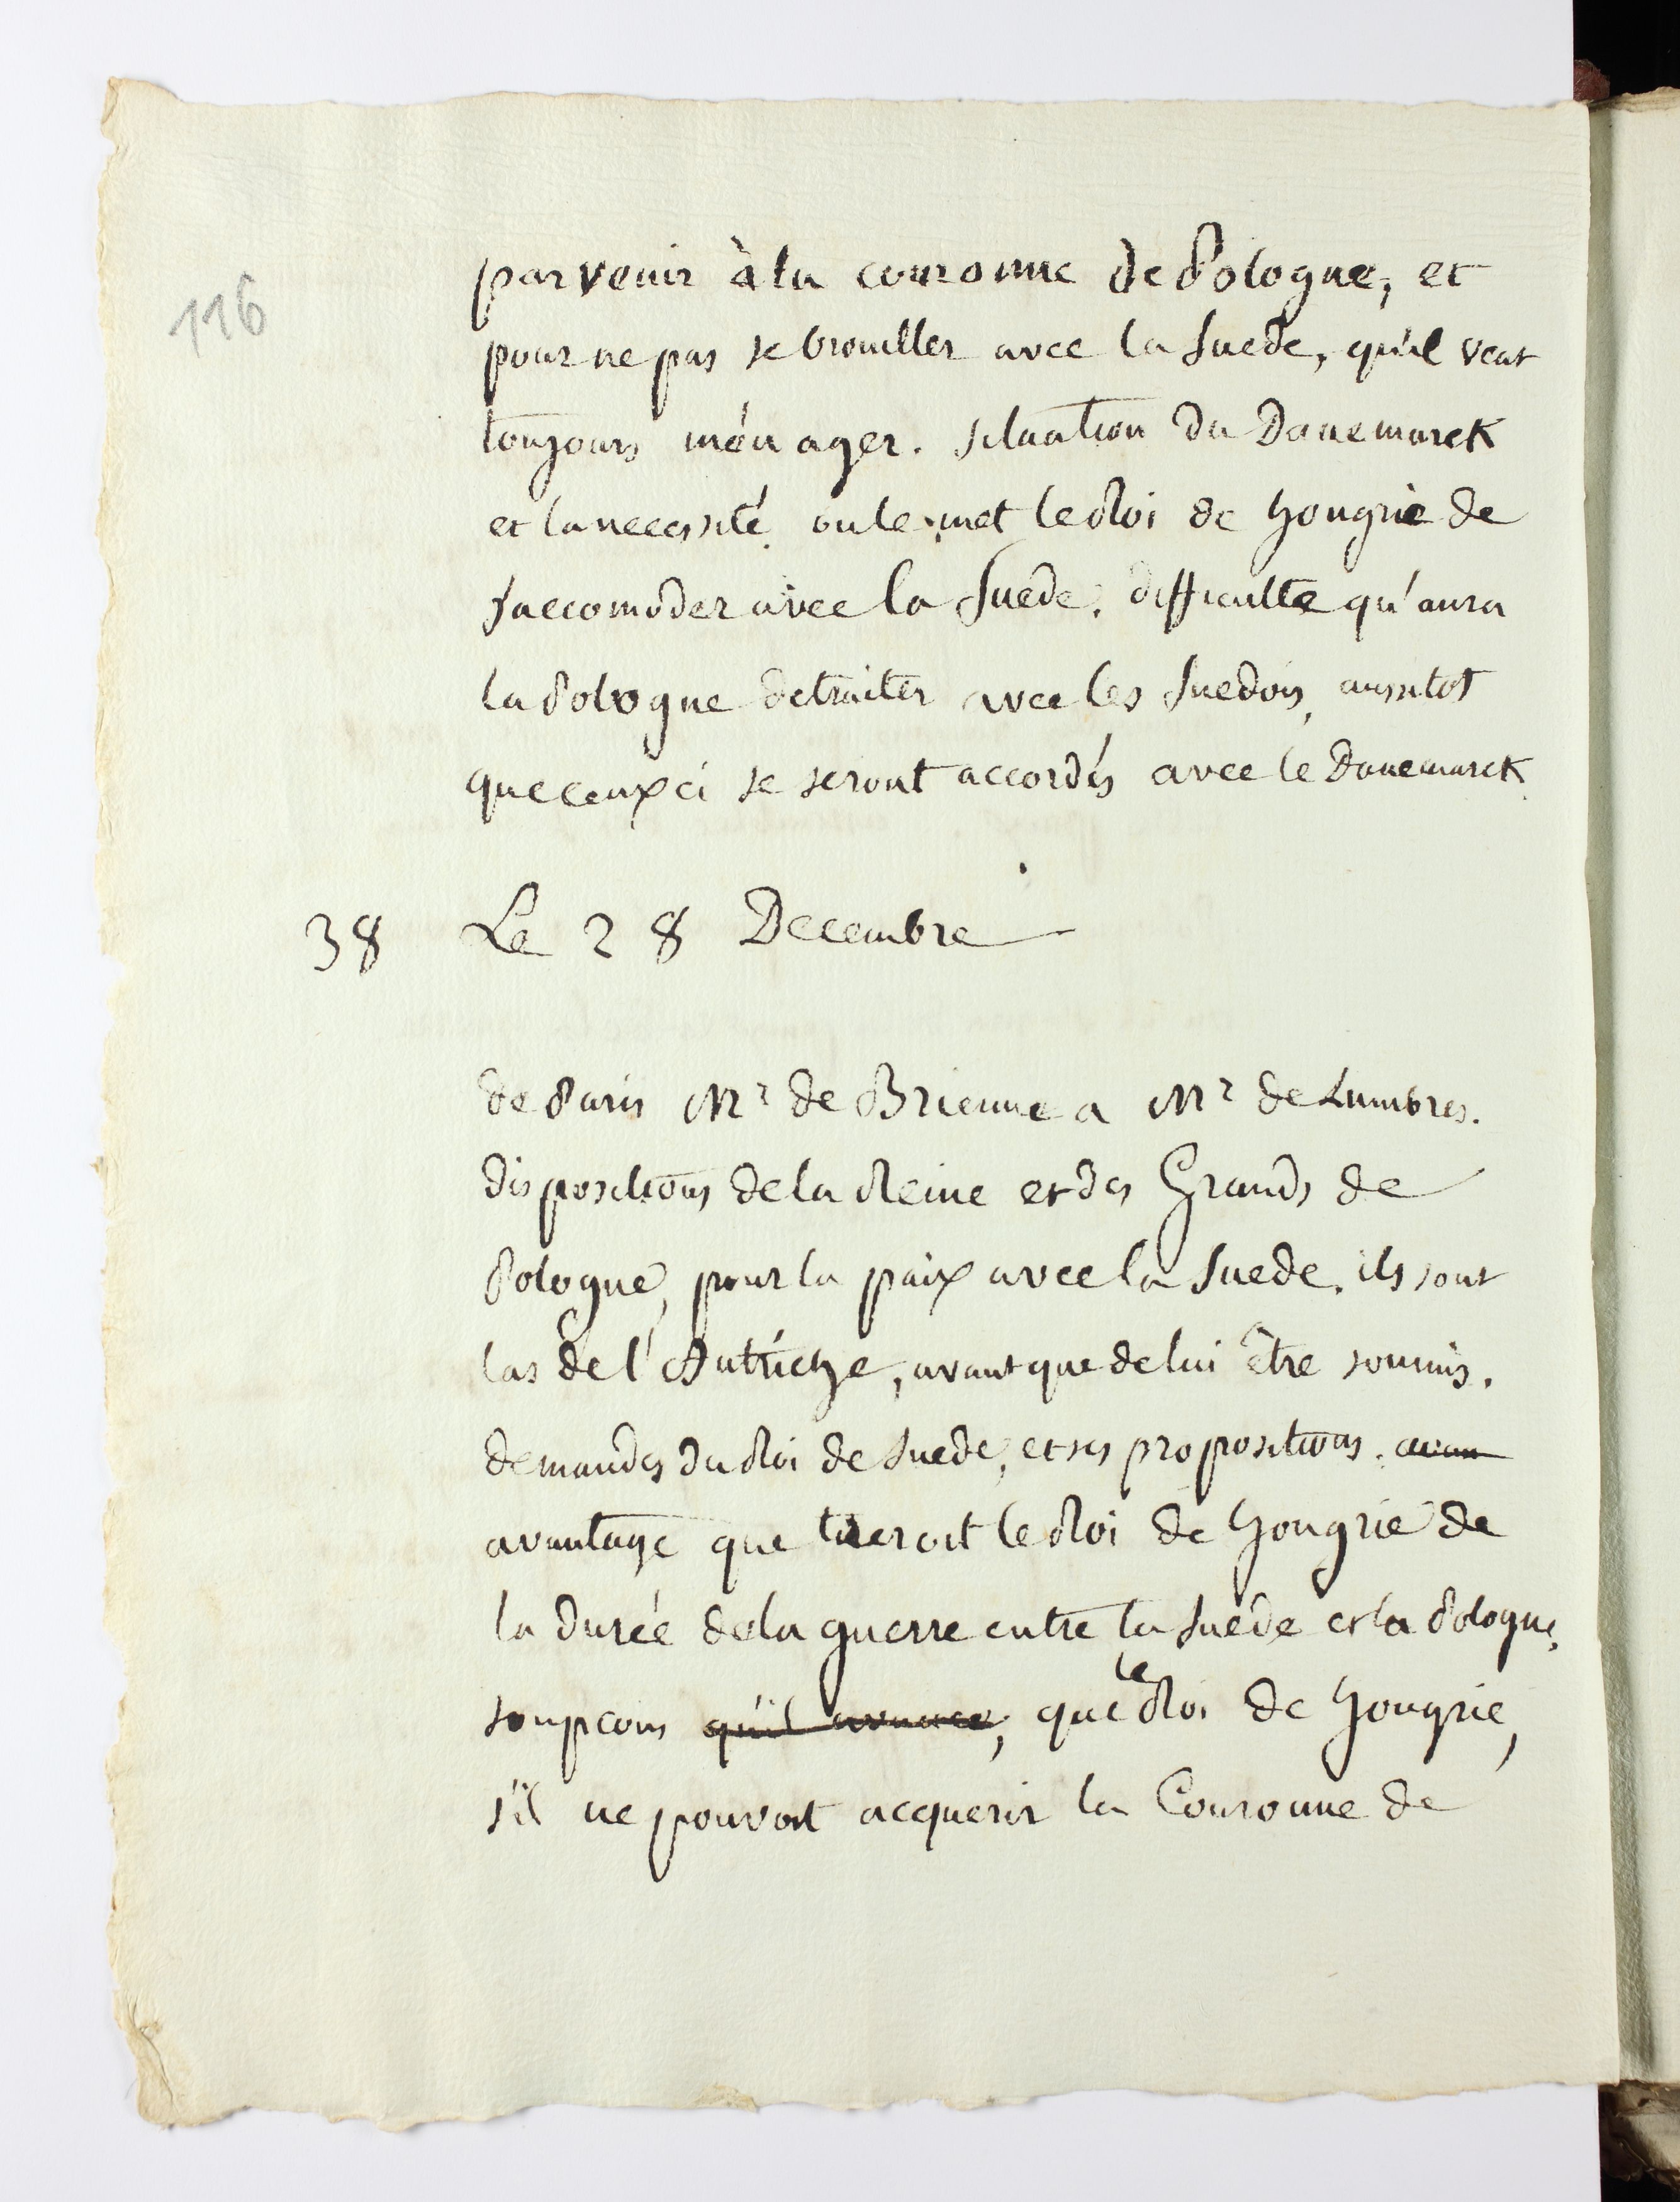 116
parvenir à la couronne de Pologne, et
pour ne pas se brouiller avec la Suede, qu'il veut
toujours ménager. situation du Danemarck
et la necessité ou le met le Roi de hongrie de
saccomoder avec la Suede. difficulte qu'aura
la Pologne de traiter avec les Suedois, aussitot
que ceux ci se seront accordés avec le Danemarck.
38 Le 28 Decembre
de Paris Mr de Brienne a Mr de Lumbres.
dispositions de la Reine et des Grands de
Pologne, pour la paix avec la Suede. ils sont
las de l'Autriche, avant que de lui être soumis.
demandes du Roi de Suede, et ses propositions. avan
avantage que tireroit le Roi de hongrie de
la durée de la guerre entre la Suede et la Pologne.
soupcons qu'il avance, que le Roi de hongrie,
s'il ne pouvoit acquerir la Couronne de